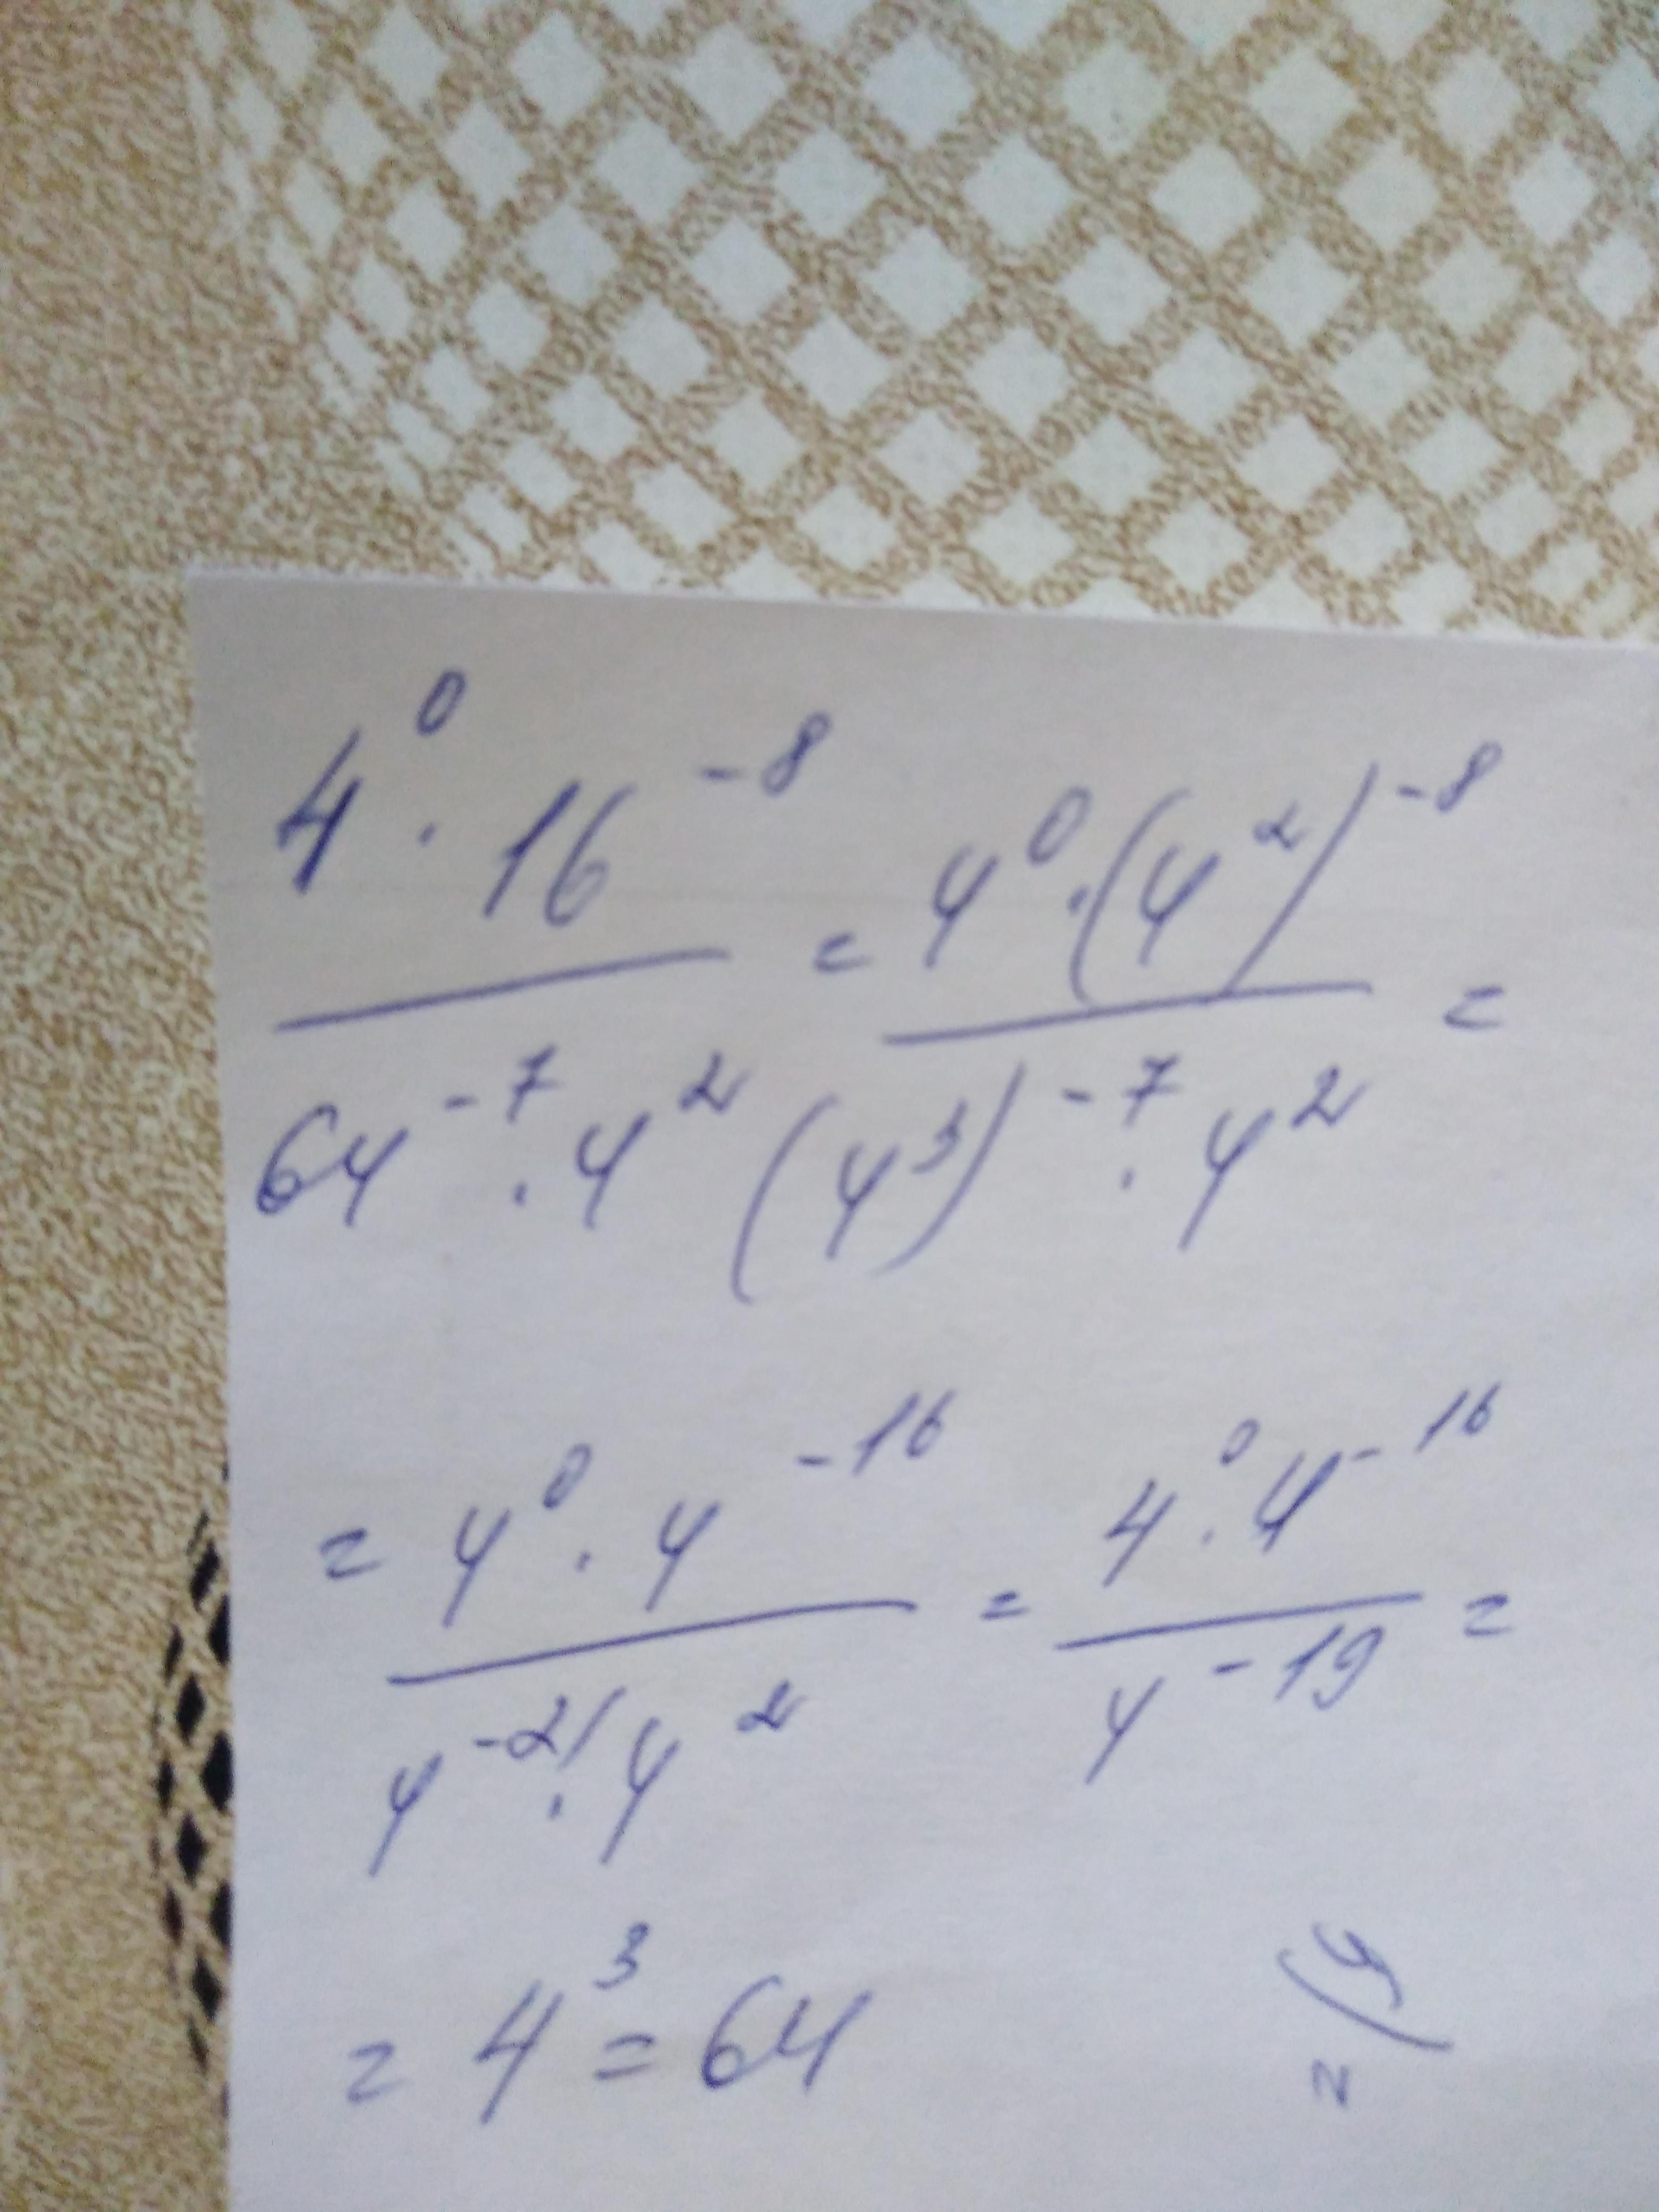 4⁰ · 16⁻⁸ / 64⁻⁷ · 4² = 4⁰ · (4²)⁻⁸ / (4³)⁻⁷ · 4² =
= 4⁰ · 4⁻¹⁶ / 4⁻²¹ · 4² = 4⁰ · 4⁻¹⁶ / 4⁻¹⁹ =
= 4³ = 64